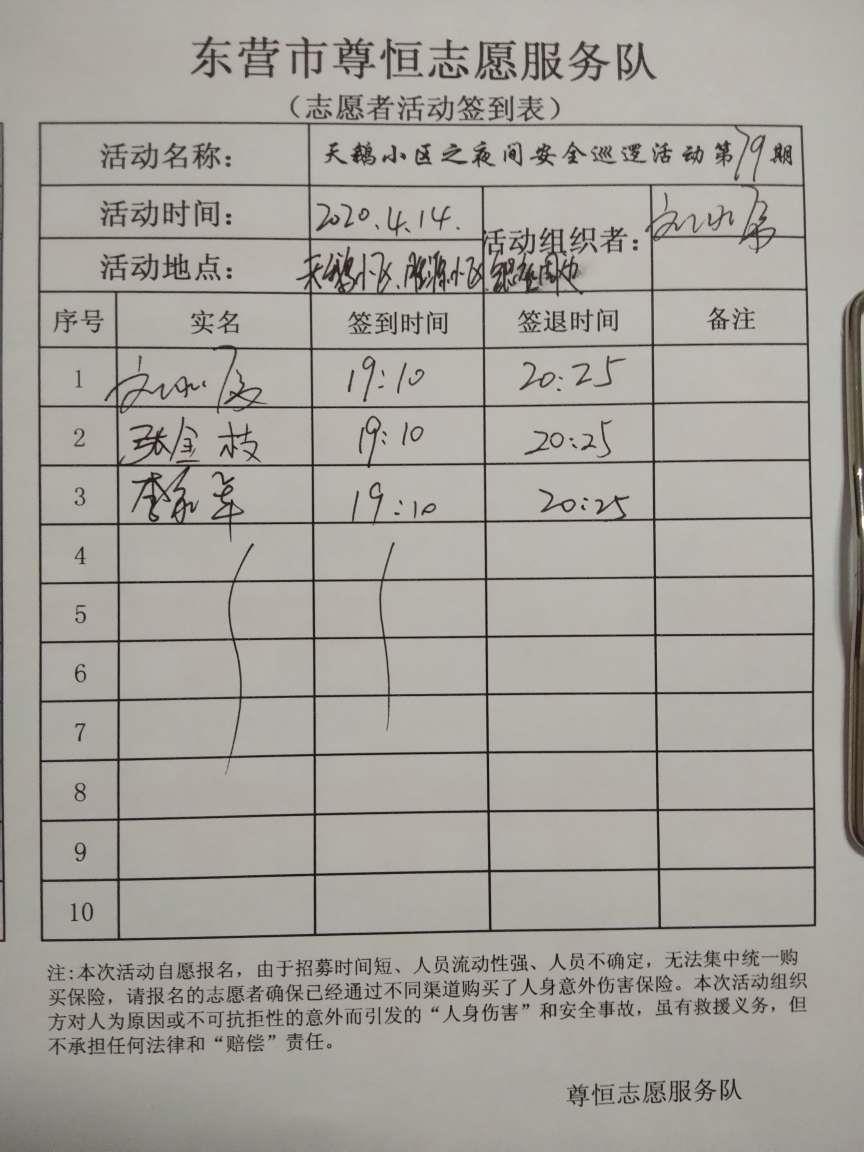 东营市尊恒志愿服务队
（志愿者活动签到表）
活动名称： 天鹅小区之夜间安全巡逻活动第79期
活动时间： 2020.4.14. 活动组织者：
活动地点： 天鹅小区、
序号 实名 签到时间 签退时间 备注
1 19:10 20:25
2 张金枝 19:10 20:25
3 李 19:10 20:25
4
5
6
7
8
9
10
注:本次活动自愿报名，由于招募时间短、人员流动性强、人员不确定，无法集中统一购
买保险，请报名的志愿者确保已经通过不同渠道购买了人身意外伤害保险。本次活动组织
方对人为原因或不可抗拒性的意外而引发的“人身伤害”和安全事故，虽有救援义务，但
不承担任何法律和“赔偿”责任。
尊恒志愿服务队